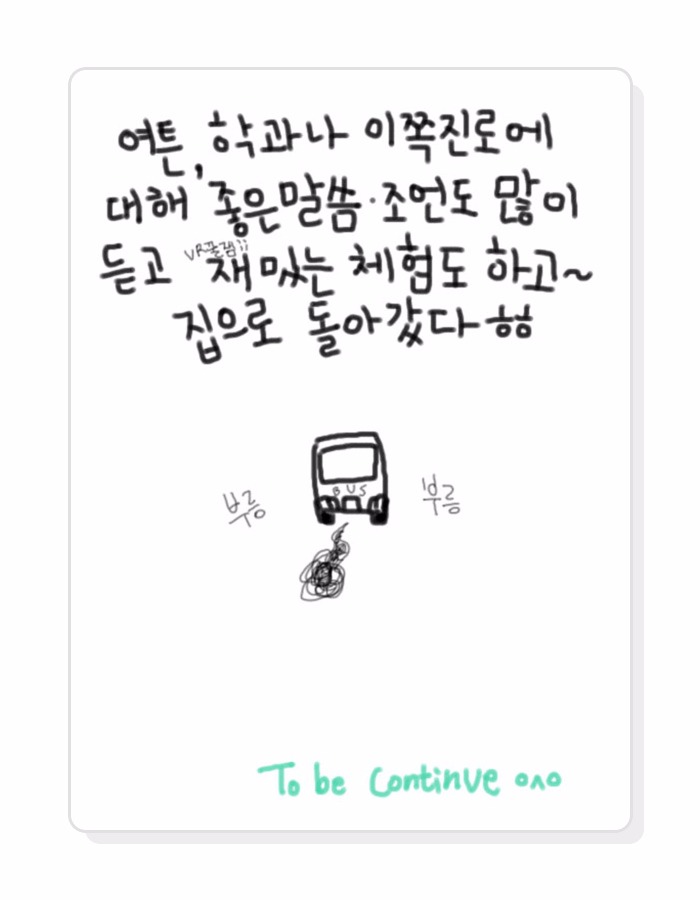 여튼, 학과나 이쪽진로에
대해 좋은말씀·조언도 많이
듣고 VR꿀잼;; 재밌는 체험도 하고~
집으로 돌아갔다 ㅎㅎ
부릉 부릉
BUS
To be Continue ㅇㅅㅇ